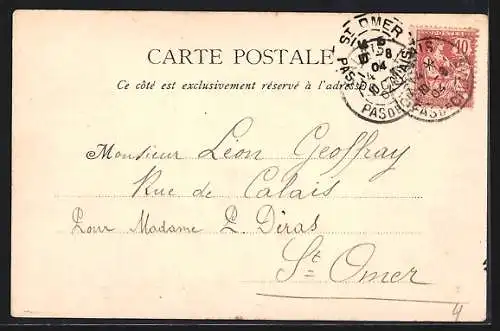 CARTE POSTALE
Ce côté est exclusivement réservé à l'adresse
ST OMER
PAS DE CALAIS
04
10
POSTES
Monsieur Léon Geoffray
Rue de Calais
Pour Madame P. Déras
St Omer